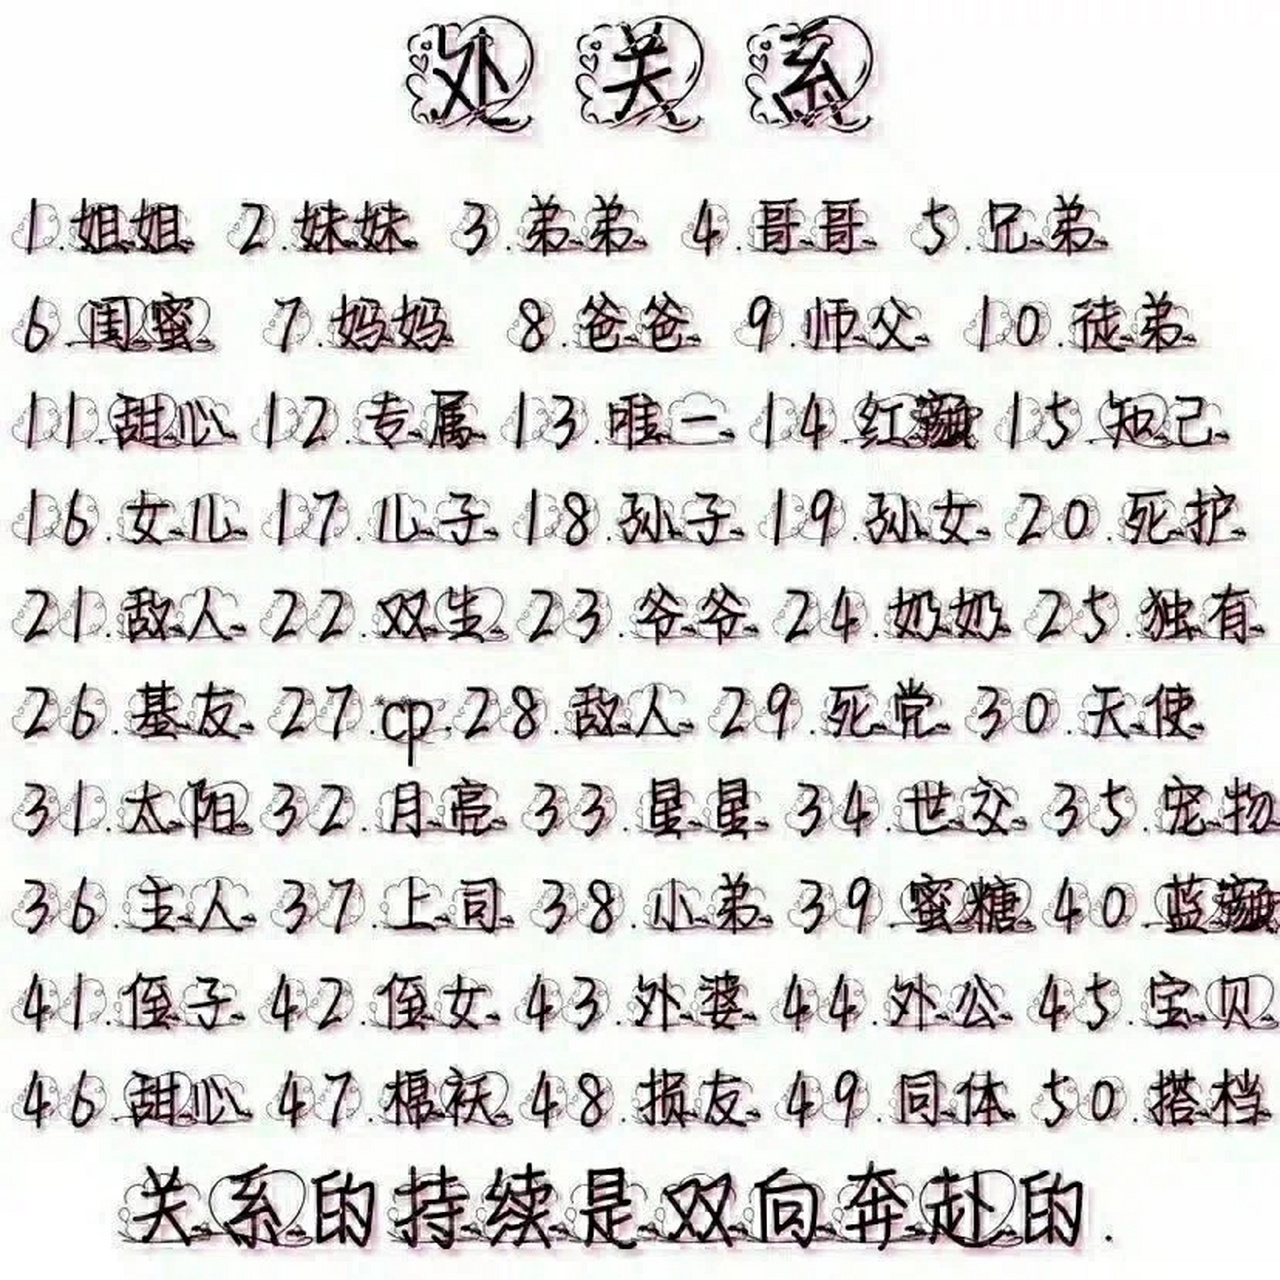 处关系
1.姐姐 2.妹妹 3.弟弟 4.哥哥 5.兄弟
6.闺蜜 7.妈妈 8.爸爸 9.师父 10.徒弟
11.甜心 12.专属 13.唯一 14.红颜 15.知己
16.女儿 17.儿子 18.孙子 19.孙女 20.死护
21.敌人 22.双生 23.爷爷 24.奶奶 25.独有
26.基友 27.cp.28.敌人 29.死党 30.天使
31.太阳 32.月亮 33.星星 34.世交 35.宠物
36.主人 37.上司 38.小弟 39.蜜糖 40.蓝颜
41.侄子 42.侄女 43.外婆 44.外公 45.宝贝
46.甜心 47.棉袄 48.损友 49.同体 50.搭档
关系的持续是双向奔赴的.